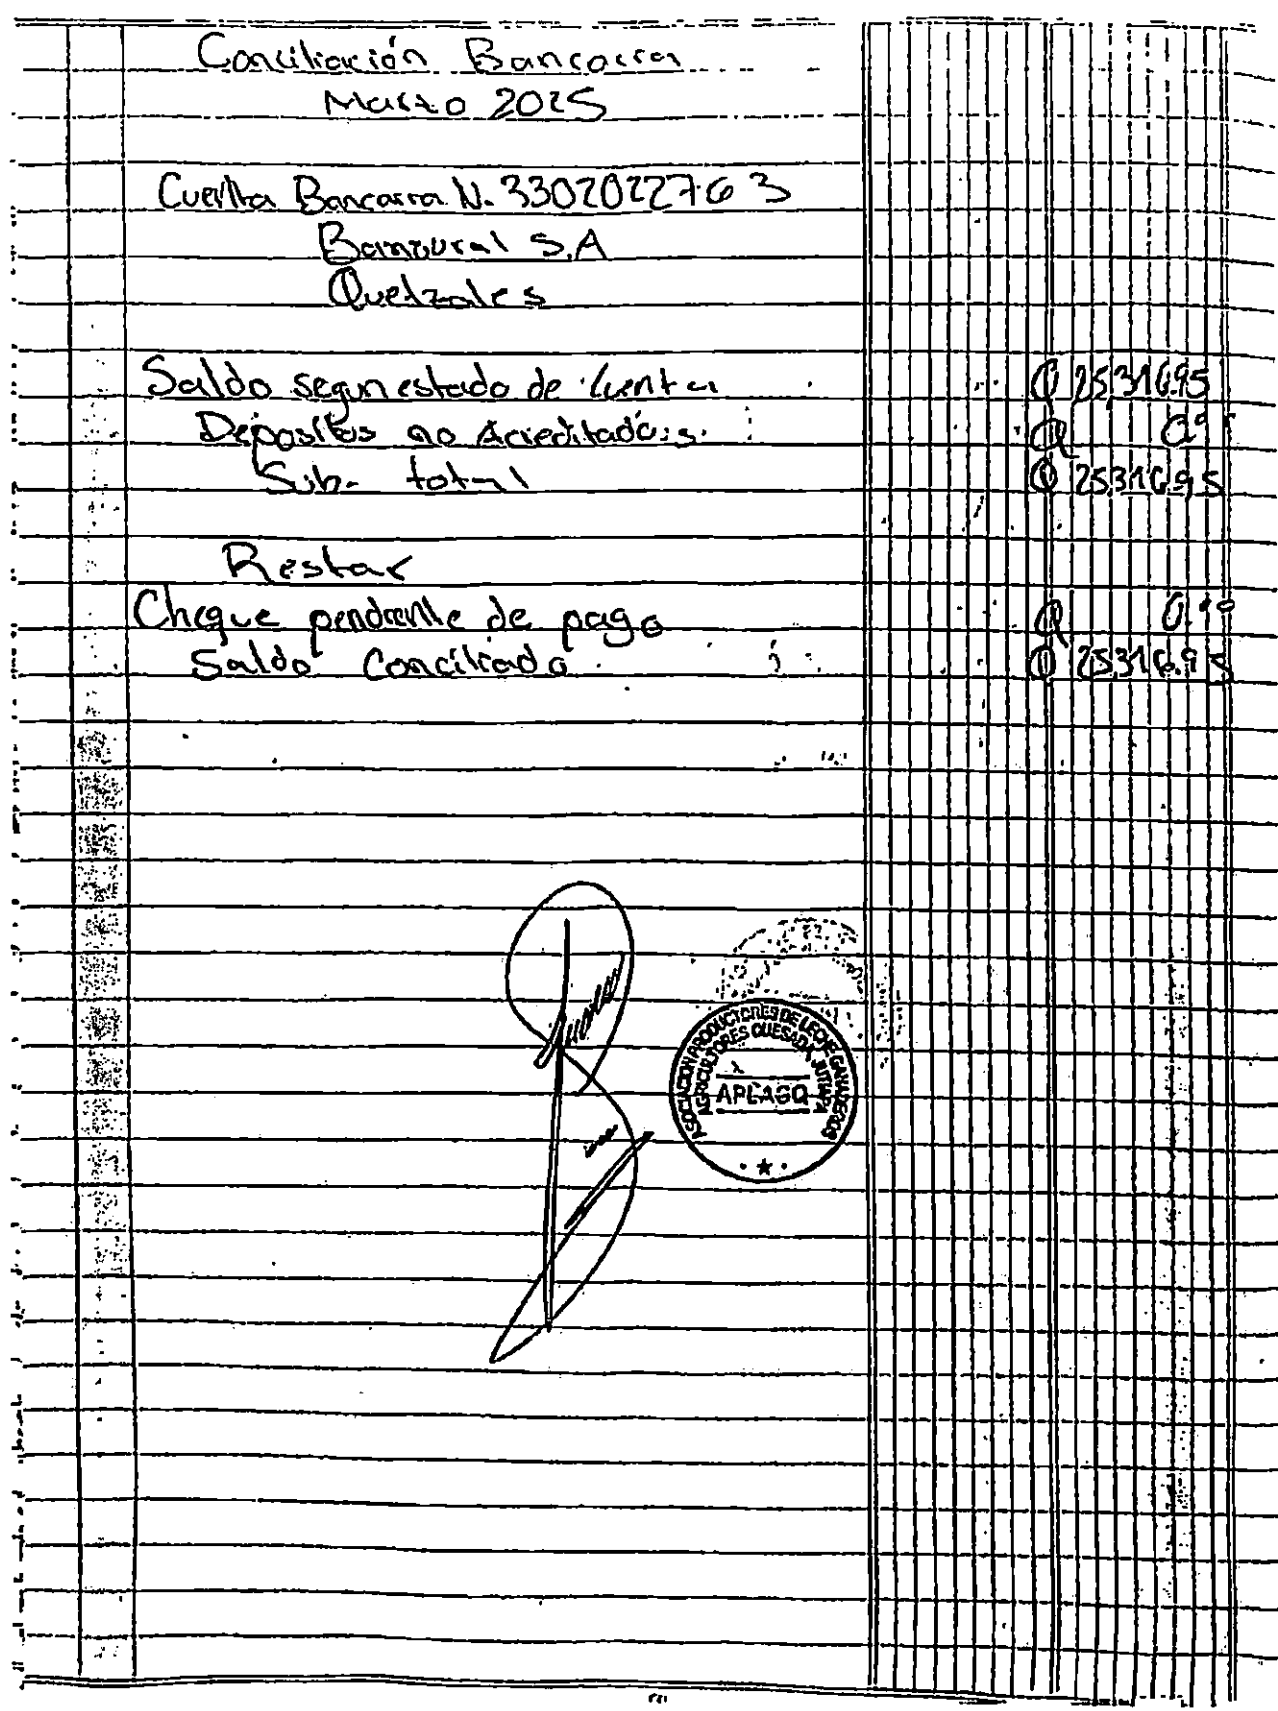 Conciliación Bancaria
Marzo 2025
Cuenta Bancaria N. 3302022763
Banrural S.A
Quetzales
Saldo segun estado de Cuenta Q 25,316.95
Depositos no Acreditados. Q 0.00
Sub-total Q 25316.95
Restar
Cheque pendiente de pago Q 0.00
Saldo Conciliado Q 25316.95
ASOCIACION PRODUCTORES DE LECHE GANADEROS
AGRICULTORES QUESADA, JUTIAPA
APLAGQ